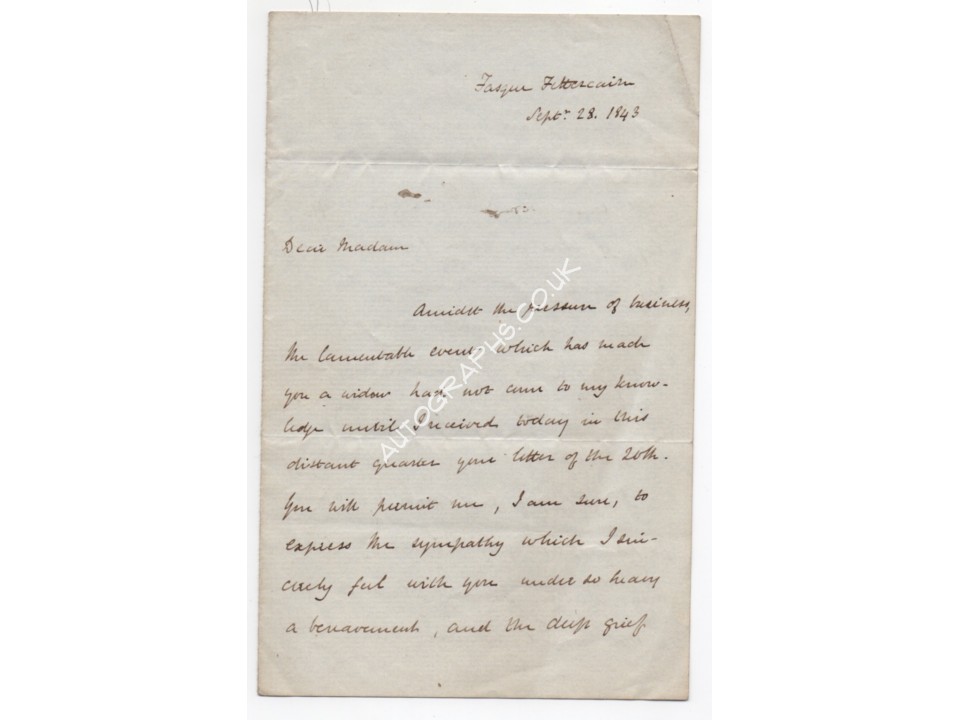 Fasque Fettercairn
Septr. 28. 1843
Dear Madam
Amidst the pressure of business,
the lamentable event which has made
you a widow had not come to my know-
ledge until I received today in this
distant quarter your letter of the 20th.
You will permit me, I am sure, to
express the sympathy which I sin-
cerely feel with you under so heavy
a bereavement, and the deep grief
AUTOGRAPHS.CO.UK